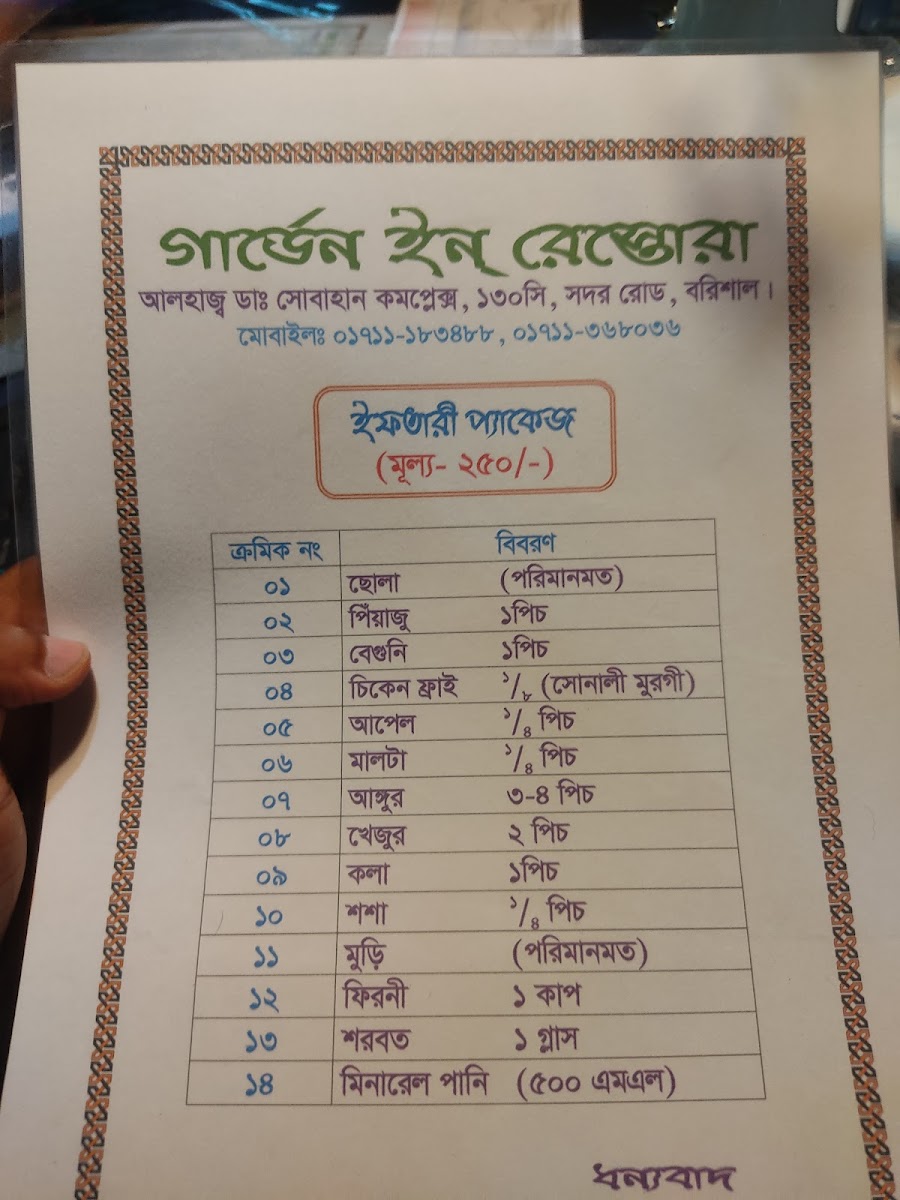 গার্ডেন ইন্ রেস্তোরা
আলহাজ্ব ডাঃ সোবাহান কমপ্লেক্স, ১৩০সি, সদর রোড, বরিশাল।
মোবাইলঃ ০১৭১১-১৮৩৪৮৮, ০১৭১১-৩৬৮০৩৬
ইফতারী প্যাকেজ
(মূল্য- ২৫০/-)
ক্রমিক নং বিবরণ
০১ ছোলা (পরিমানমত)
০২ পিঁয়াজু ১পিচ
০৩ বেগুনি ১পিচ
০৪ চিকেন ফ্রাই ১/৮ (সোনালী মুরগী)
০৫ আপেল ১/৪ পিচ
০৬ মালটা ১/৪ পিচ
০৭ আঙ্গুর ৩-৪ পিচ
০৮ খেজুর ২ পিচ
০৯ কলা ১পিচ
১০ শশা ১/৪ পিচ
১১ মুড়ি (পরিমানমত)
১২ ফিরনী ১ কাপ
১৩ শরবত ১ গ্লাস
১৪ মিনারেল পানি (৫০০ এমএল)
ধন্যবাদ